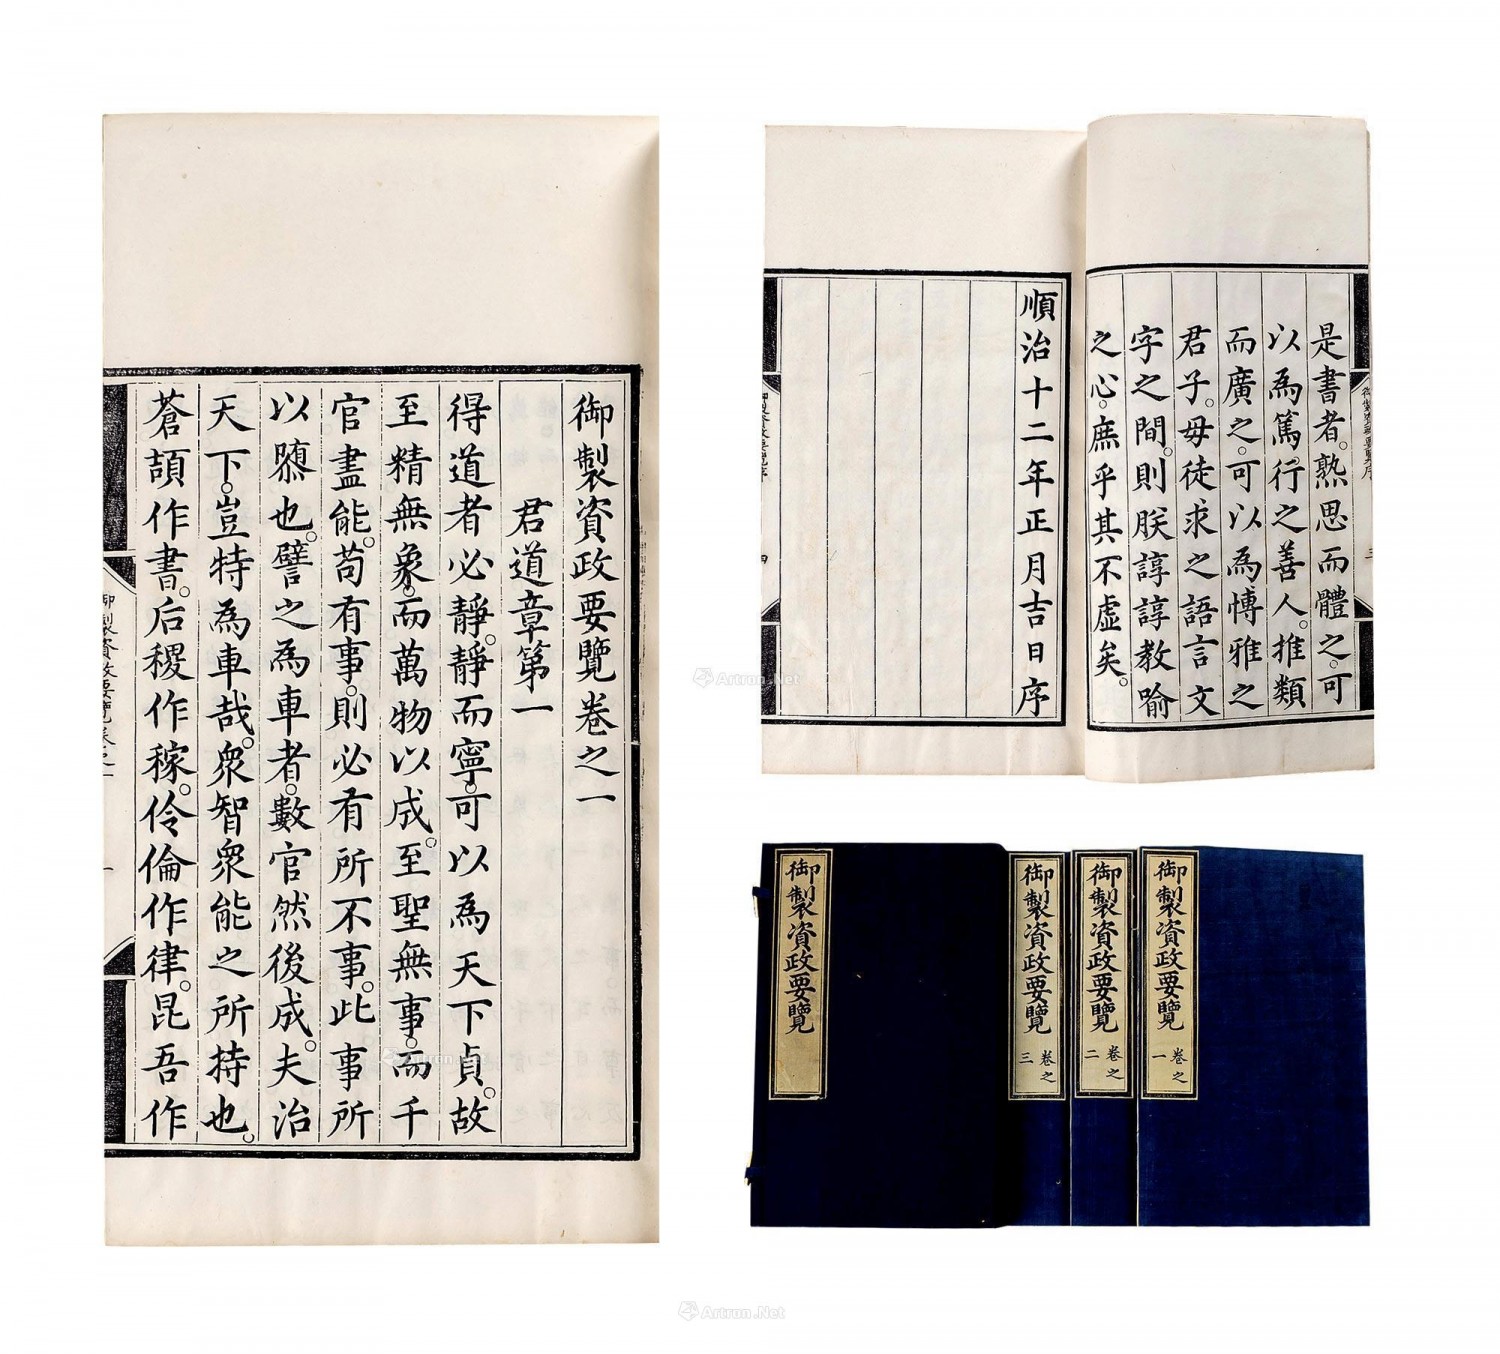 御製資政要覽卷之一
君道章第一
得道者必靜。靜而寧。可以為天下貞。故
至精無象。而萬物以成。至聖無事。而千
官盡能。苟有事。則必有所不事。此事所
以隳也。譬之為車者。數官然後成。夫治
天下。豈特為車哉。衆智衆能之所持也。
蒼頡作書。后稷作稼。伶倫作律。昆吾作
御製資政要覽卷之一
一
是書者。熟思而體之。可
以為篤行之善人。推類
而廣之。可以為博雅之
君子。毋徒求之語言文
字之間。則朕諄諄教喻
之心。庶乎其不虛矣。
順治十二年正月吉日序
御製資政要覽序
三
御製資政要覽序
四
御製資政要覽
卷之一
御製資政要覽
卷之二
御製資政要覽
卷之三
御製資政要覽
Artron.Net
Artron.Net
Artron.Net